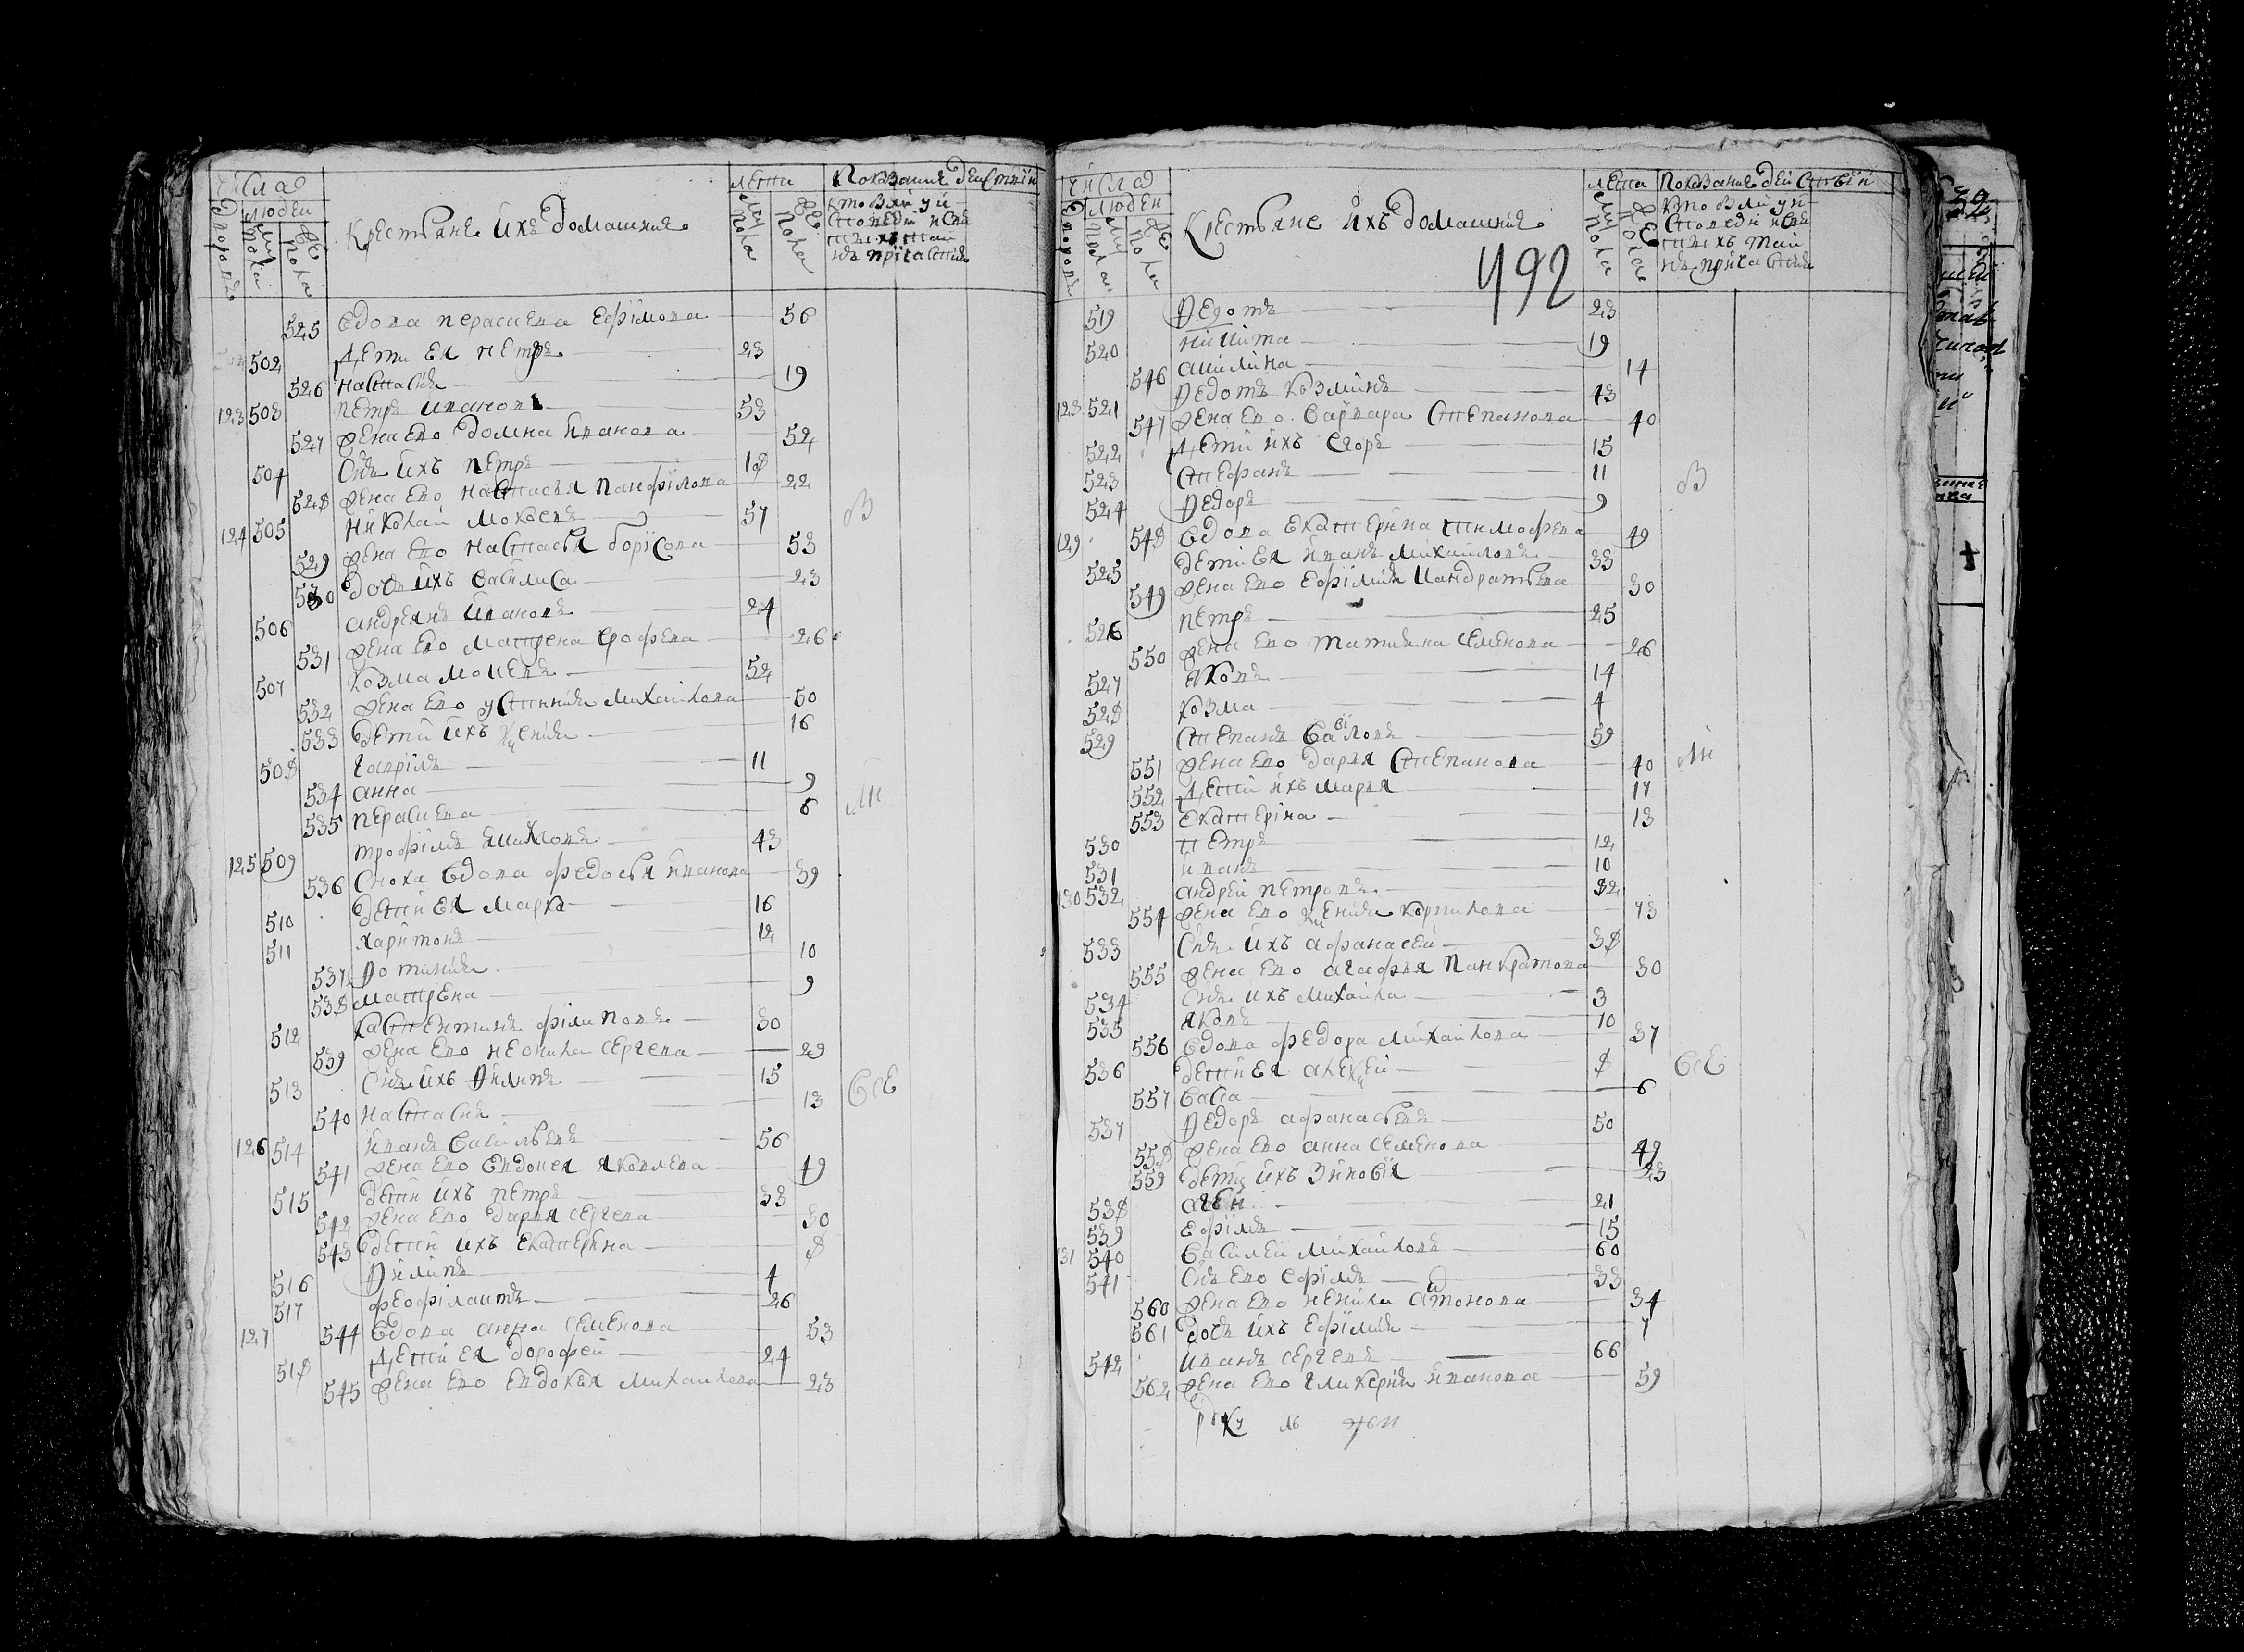 числа
людей
дворовъ
муж пола
же пола
Крестьяне ихъ домашние
лета
муж пола
же пола
Показание действий
кто были у и
споведи и свя
тыхъ таи
нъ причастия
525 вдова Герасиева Ефимова 56
502 Дети ея Петръ 23
526 Настасия 19
123 503 Петръ Ивановъ 53
527 жена ево Домна Иванова 52
504 Снъ ихъ Петръ 18
528 жена ево Настасья Панфилова 22
124 505 Николай Мокеевъ 57
В
529 жена ево Настасья Борисова 53
530 дочь ихъ Василиса 23
506 Андреянъ Ивановъ 24
531 жена ево Матрена Ерофева 26
507 Козма Мокевъ 52
532 жена ево Устиния Михаилова 50
533 дети ихъ Ксения 16
508 Гаврилъ 11
534 Анна 9
535 6
ли
125 509 Трофимъ 43
536 Сноха вдова Федосья Иванова 39
510 дети ея Марко 16
511 Харитонъ 12
537 Фотиния 10
538 Матрена 9
512 Кастентинъ Филиповъ 30
539 жена ево Неонила Сергева 29
513 Снъ ихъ Филипъ 15
540 Настасия 13
все
126 514 Иванъ Васильевъ 56
541 жена ево Евдокея Яковлева 49
515 дети ихъ Петръ 33
542 жена ево Дарья Сергева 30
543 дети ихъ Екатерина 8
516 Филипъ 4
517 Феофилактъ 26
127 544 вдова Анна Семенова 53
518 Дети ея Дорофей 24
545 жена ево Евдокея Михаилова 23
числа
людей
дворовъ
муж пола
же пола
Крестьяне ихъ домашние
492
лета
муж пола
же пола
Показание действий
кто были у и
споведи и свя
тыхъ таи
нъ причастия
519 Федотъ 23
520 Никита 19
546 Акилина 14
128 521 Федотъ Козминъ 43
547 жена ево Варвара Степанова 40
522 Дети ихъ Егоръ 15
523 Стефанъ 11
В
524 Федоръ 9
129 548 вдова Екатерина Тимофева 49
525 дети ея Иванъ Михаиловъ 33
549 жена ево Ефимия Кандратьева 30
526 Петръ 25
550 жена ево Татияна Семенова 26
527 Яковъ 14
528 Козма 4
529 Степанъ Савиловъ 59
551 жена ево Дарья Степанова 40
ли
552 Дети ихъ Марья 17
553 Екатерина 13
530 Петръ 12
531 Иванъ 10
130 532 Андрей Петровъ 32
554 жена ево Ксения Корнилова 73
533 Снъ ихъ Афанасей 38
555 жена ево Агафья Панкратова 30
534 Снъ ихъ Михаила 3
535 Яковъ 10
556 вдова Федора Михаилова 37
536 дети ея Алексей 8
все
557 Васа 6
537 Федоръ Афанасьевъ 50
558 жена ево Анна Семенова 49
559 дети ихъ Зиновия 23
538 21
539 Ефимъ 15
131 540 Василей Михаиловъ 60
541 Снъ ево Ефимъ 33
560 жена ево Ненила Артонова 34
561 дочь ихъ Ефимия 7
542 Иванъ Сергевъ 66
562 жена ево Гликерия Иванова 59